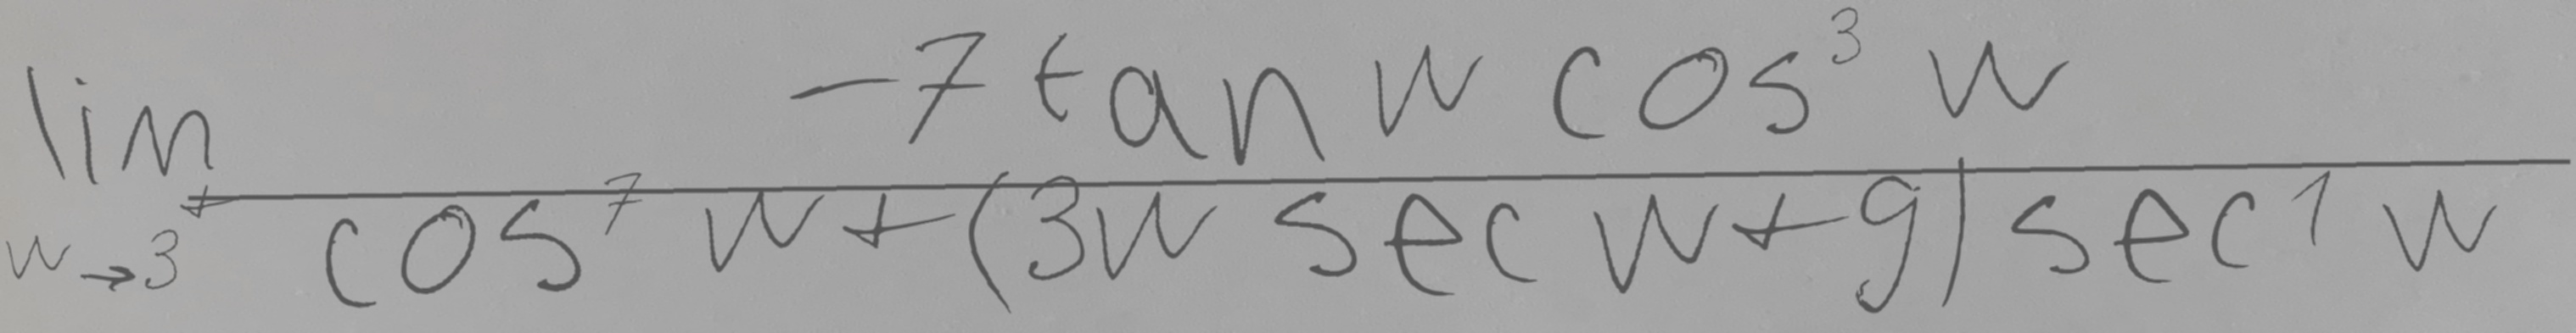 \lim_{w \to 3^+} \frac{-7 \tan w \cos^3 w}{\cos^7 w + (3w \sec w + 9) \sec^1 w}